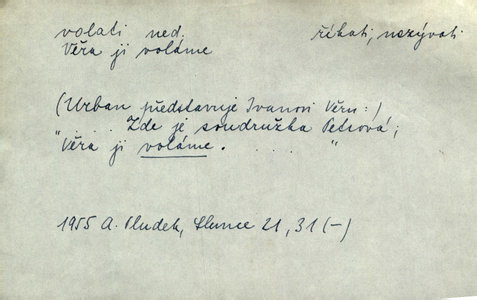 volati ned. říkati, nazývati
Věra ji voláme
(Urban představuje Ivanovi Věru:)
.... Zde je soudružka Petrová;
"Věra ji voláme. .... "
1955 A. Pludek, Slunce 21, 31 (-)